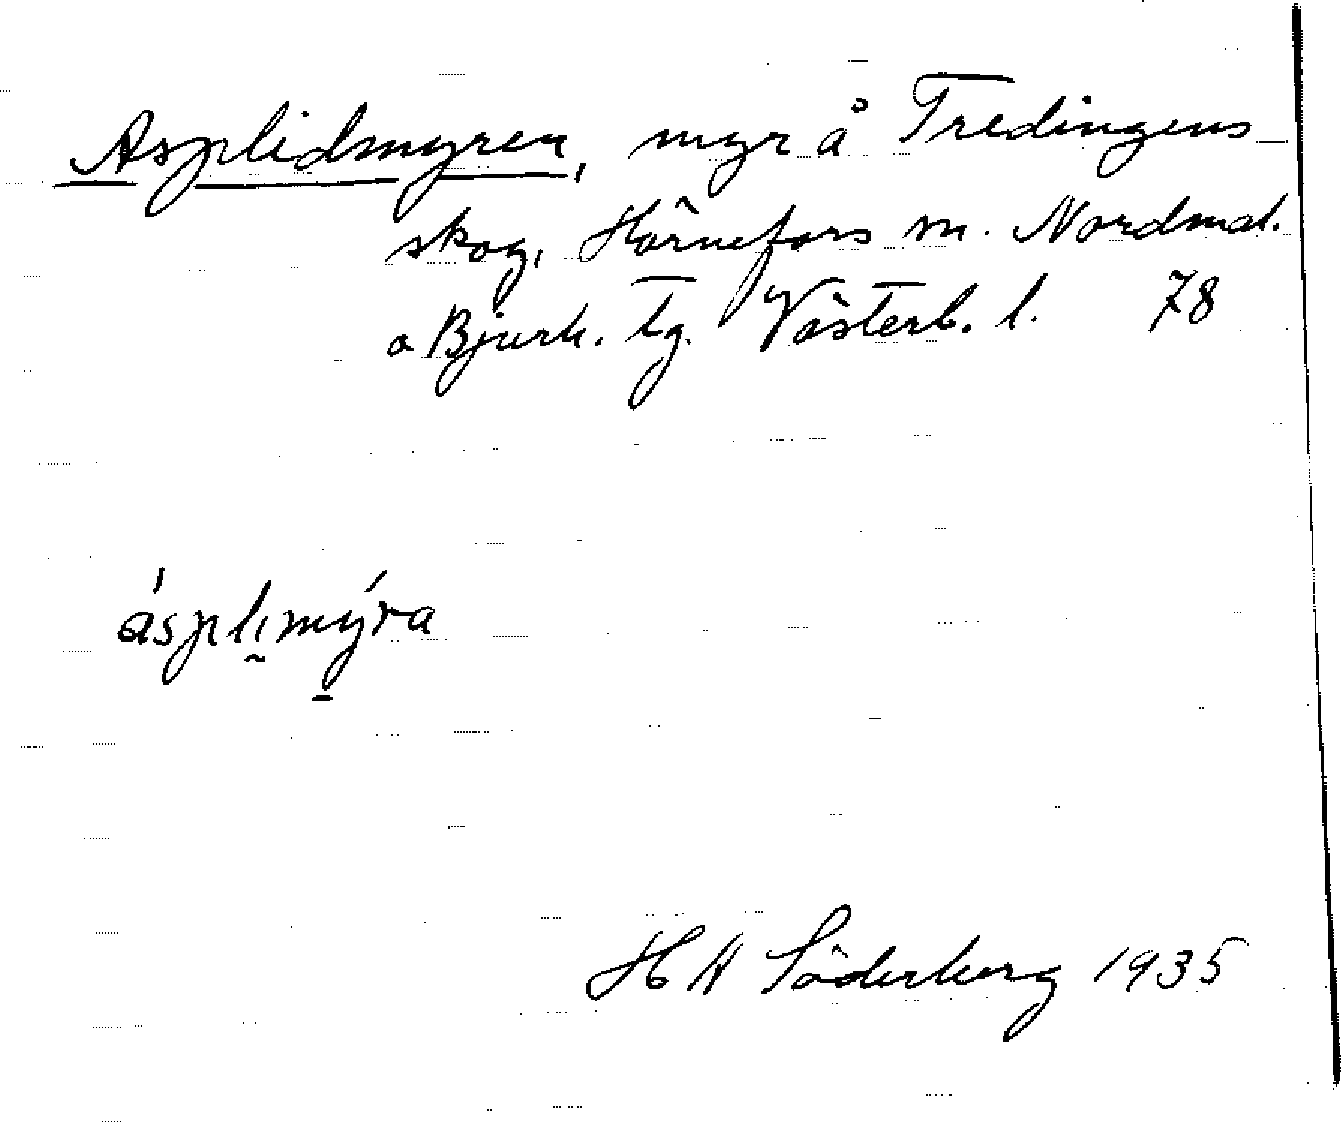 Asplidmyren, myr å Tredingens
skog, Hörnefors sn. Nordmal.
o Bjurh. tg. Västerb. l. 78
áspl̰ımý̱ra
H A Söderberg 1935